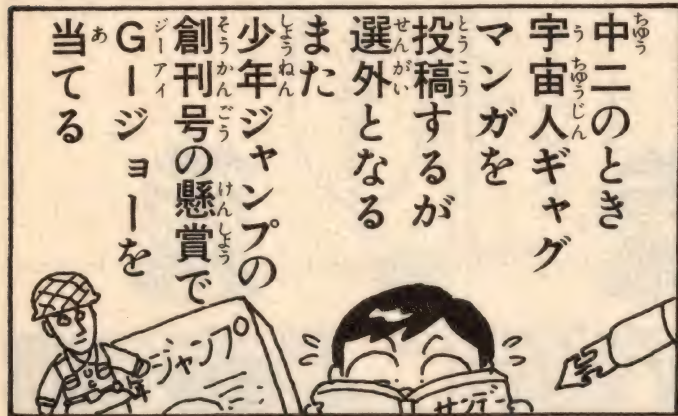 中二のとき
宇宙人ギャグ
マンガを
投稿するが
選外となる
また
少年ジャンプの
創刊号の懸賞で
GIジョーを
当てる
ジャンプ
サンデー